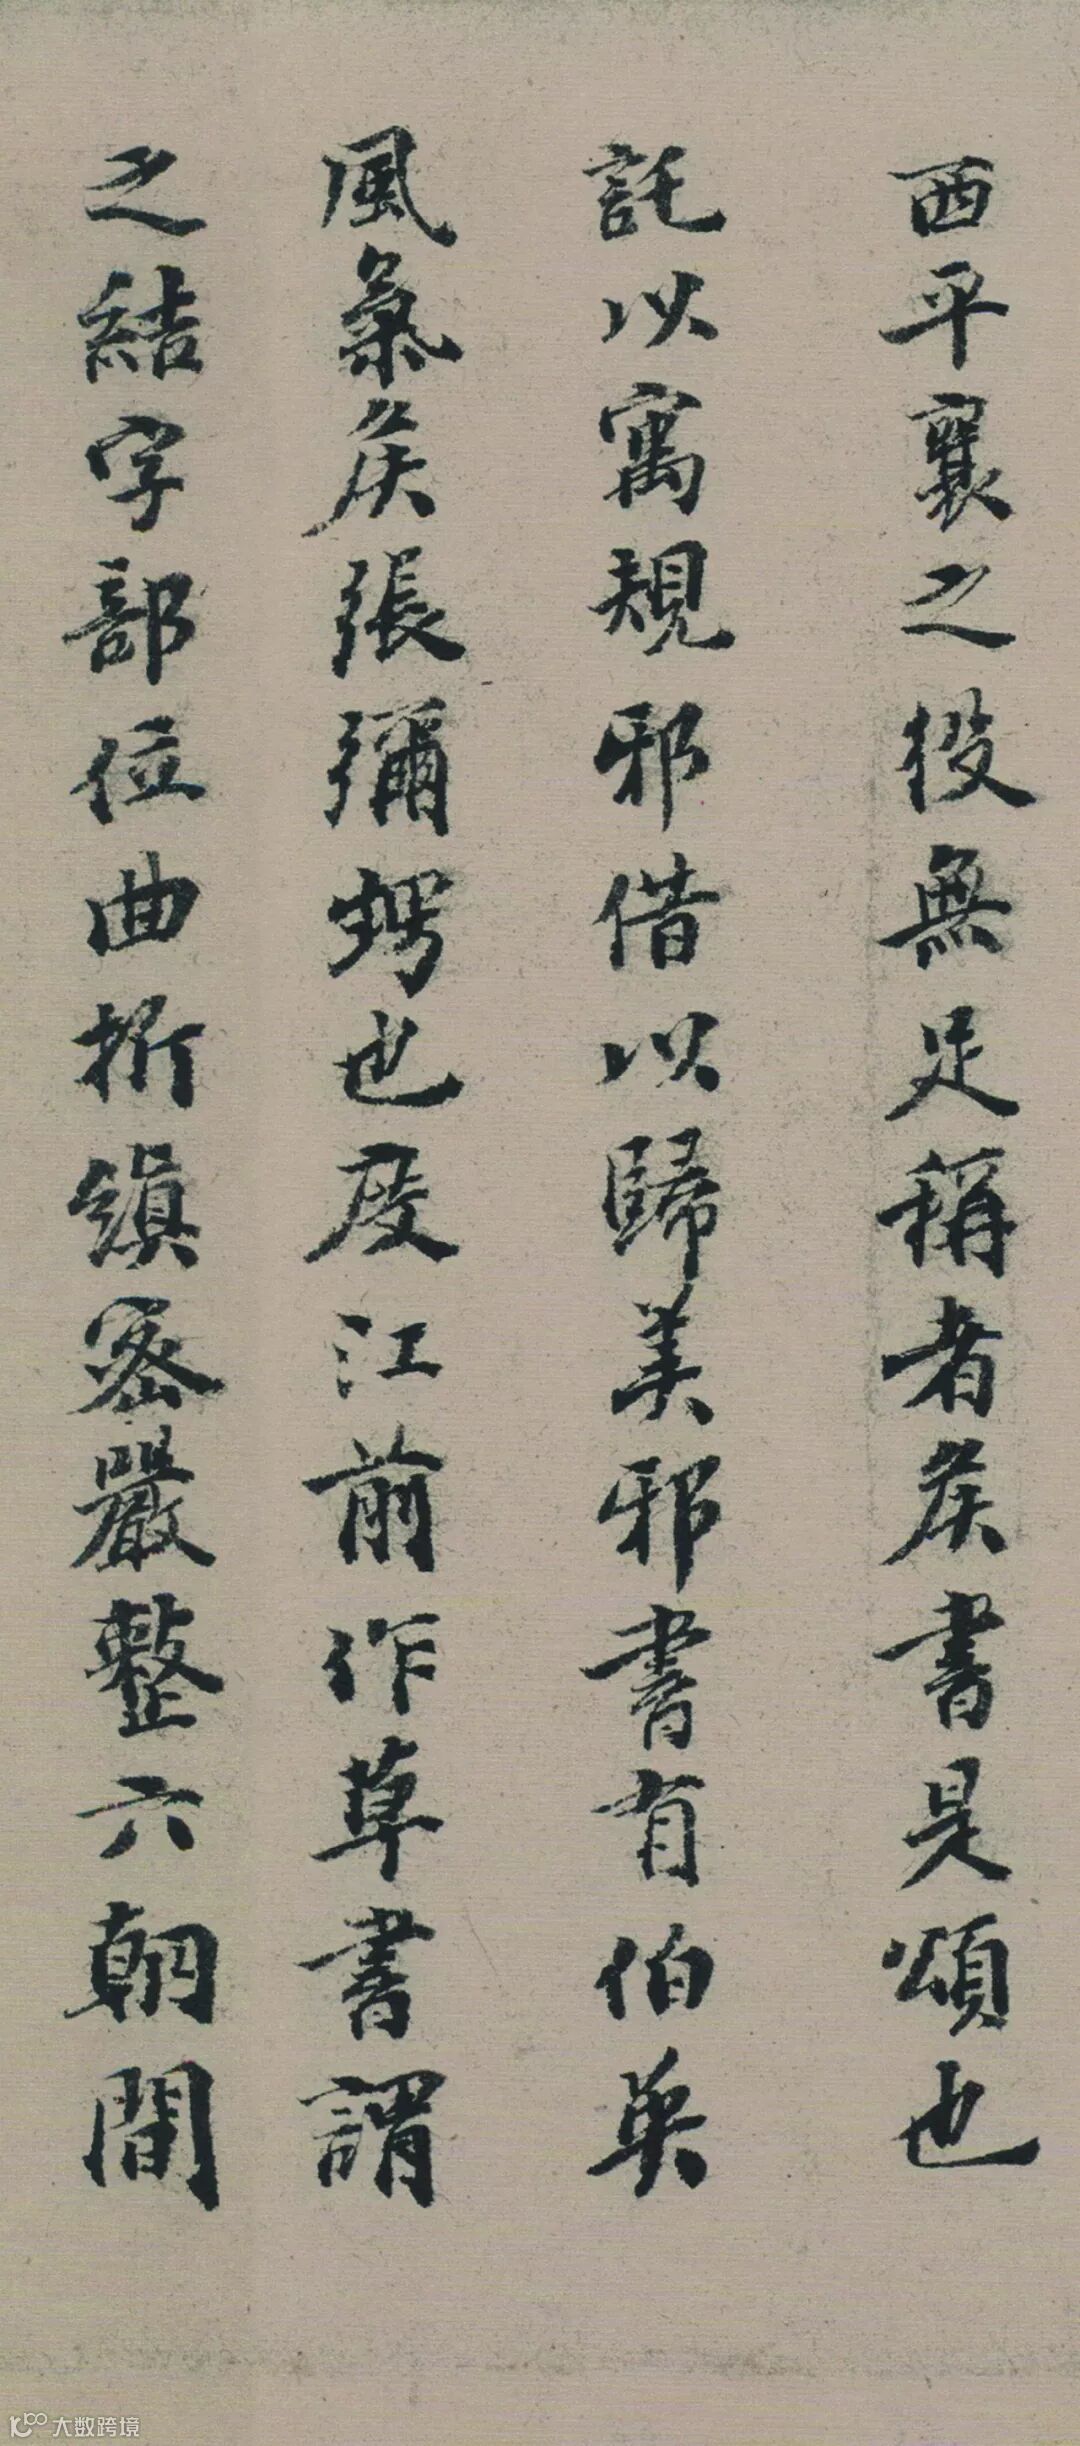 西平襄之役無足稱者矦書是頌也
託以寓規邪借以歸美邪書有伯英
風氣矦張彌愕也度江前作草書謂
之結字部位曲折縝密嚴整六朝間
大数跨境